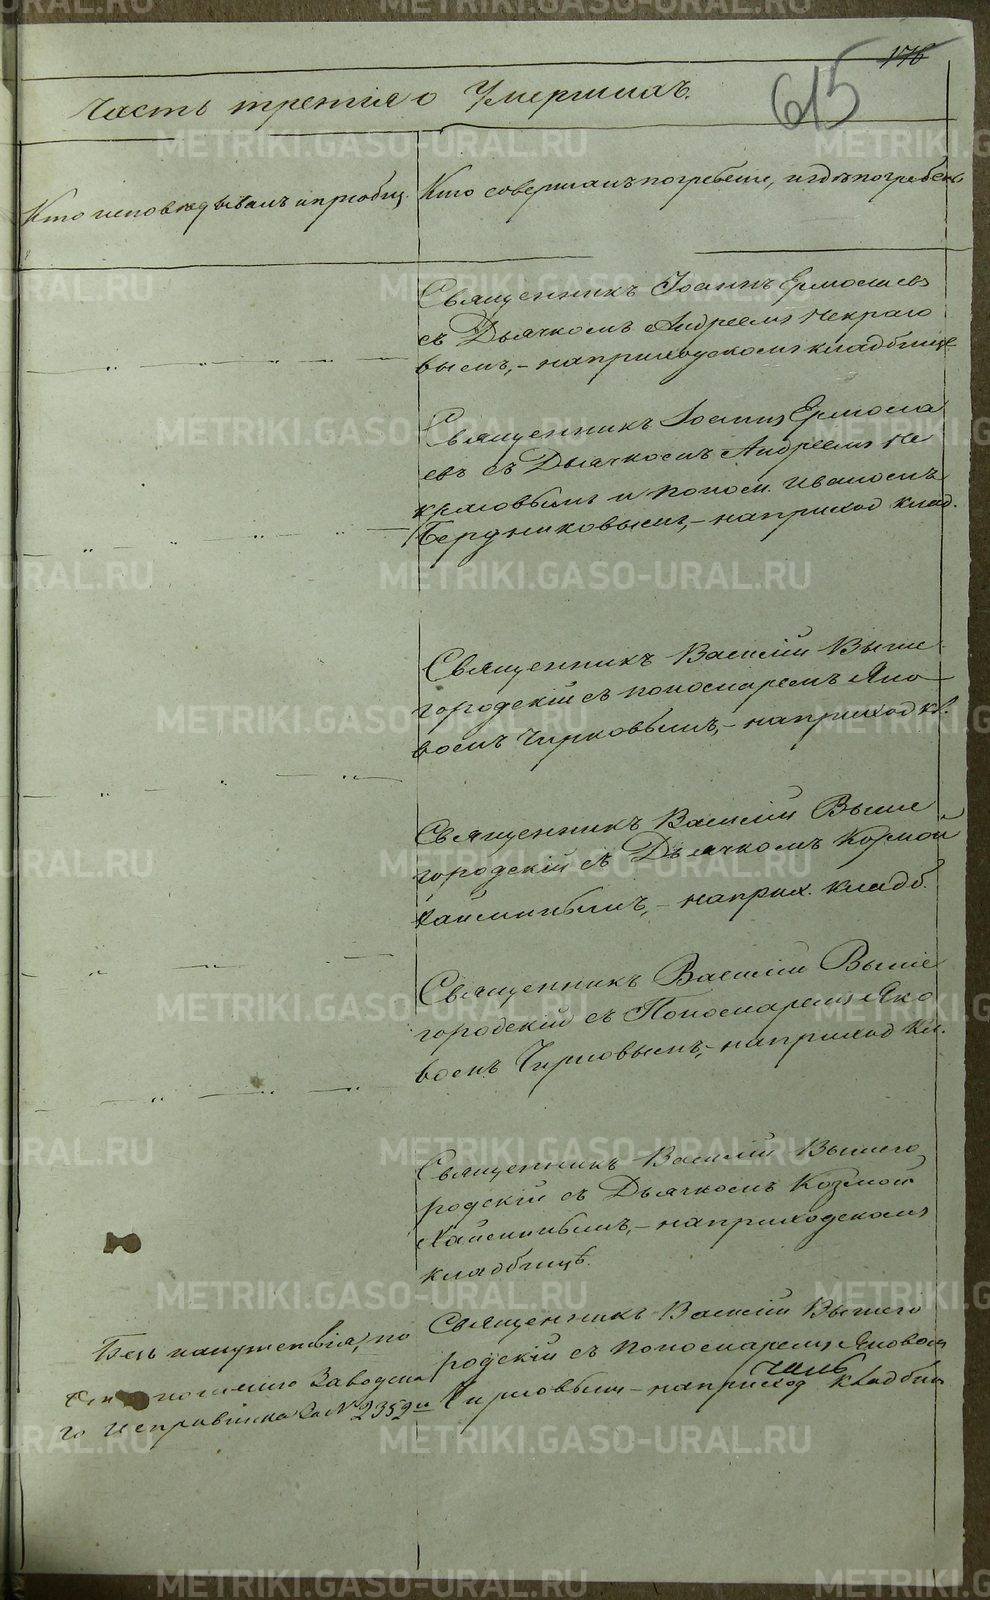 176
615
Часть третія о Умершихъ.
Кто исповѣдывалъ и пріобщ.
Кто совершалъ погребеніе, и гдѣ погребены
Священникъ Іоаннъ Ермолаевъ
съ Дьячкомъ Андреемъ Некрасо
вымъ, – на приходскомъ кладбище
Священникъ Іоаннъ Ермола
евъ съ Дьячкомъ Андреемъ Не
красовымъ и поном. Иваномъ
Бердниковымъ, – на приход клад.
Священникъ Василій Выше
городскій съ пономаремъ Яко
вомъ Чирковымъ, – на приход кл.
Священникъ Василій Выше
городскій съ Дьячкомъ Козмой
Хайминымъ, – на прих. кладб.
Священникъ Василій Выше
городскій съ Пономаремъ Яко
вомъ Чирковымъ, – на приход кл.
Священникъ Василій Вышего
родскій съ Дьячкомъ Козмой
Хайминымъ, – на приходскомъ
кладбищѣ.
Безъ напутствія, по
отношенію Заводска
го Исправника за № 2359м
Священникъ Василій Вышего
родскій съ пономаремъ Яковом
Чирковымъ – на приход кладбищ
METRIKI.GASO-URAL.RU